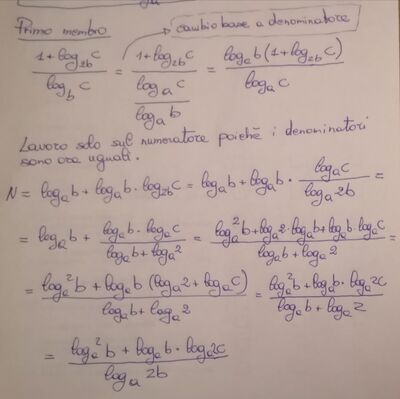 Primo membro
cambio base a denominatore
1+log_{2b} c / log_b c = 1+log_{2b} c / (log_a c / log_a b) = log_a b (1+log_{2b} c) / log_a c
Lavoro solo sul numeratore poichè i denominatori
sono ora uguali.
N = log_a b + log_a b · log_{2b} c = log_a b + log_a b · log_a c / log_a 2b =
= log_a b + log_a b · log_a c / log_a b + log_a 2 = log_a² b + log_a 2 · log_a b + log_a b · log_a c / log_a b + log_a 2 =
= log_a² b + log_a b (log_a 2 + log_a c) / log_a b + log_a 2 = log_a² b + log_a b · log_a 2c / log_a b + log_a 2
= log_a² b + log_a b · log_a 2c / log_a 2b